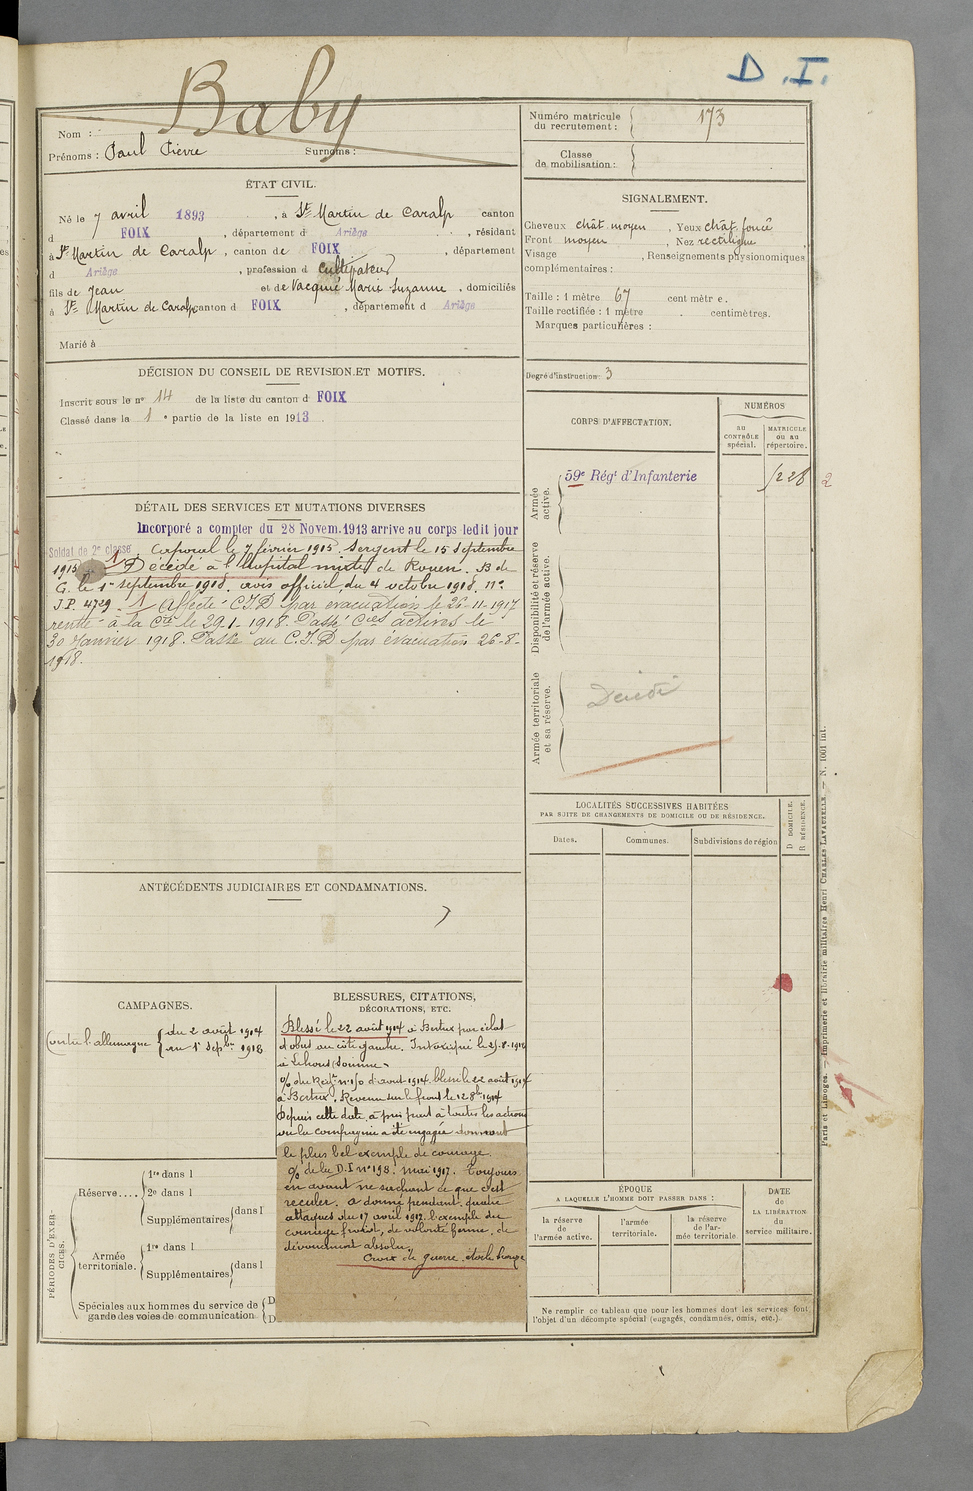 D.I.
Baby
Nom :
Prénoms : Paul Pierre Surnoms :
Numéro matricule
du recrutement : 173
Classe
de mobilisation :
ÉTAT CIVIL.
Né le 7 avril 1893, à St Martin de Caralp canton
d FOIX, département d Ariège, résidant
à St Martin de Caralp, canton de FOIX, département
d Ariège, profession d cultivateur
fils de Jean et de Vacquié Marie Suzanne, domiciliés
à St Martin de Caralp canton d FOIX, département d Ariège
Marié à
SIGNALEMENT.
Cheveux chât. moyen, Yeux chât. foncé
Front moyen, Nez rectiligne
Visage , Renseignements physionomiques
complémentaires :
Taille : 1 mètre 67 centimètre.
Taille rectifiée : 1 mètre centimètres.
Marques particulières :
Degré d'instruction : 3
DÉCISION DU CONSEIL DE REVISION ET MOTIFS.
Inscrit sous le no 14 de la liste du canton d FOIX
Classé dans la 1e partie de la liste en 1913
CORPS D'AFFECTATION.
NUMÉROS
au
CONTRÔLE
spécial.
MATRICULE
ou au
répertoire.
Armée
active.
59e Régt d'Infanterie
2
Disponibilité et réserve
de l'armée active.
Armée territoriale
et sa réserve.
Décédé
DÉTAIL DES SERVICES ET MUTATIONS DIVERSES
Incorporé a compter du 28 Novem. 1913 arrive au corps ledit jour
Soldat de 2e classe. Caporal le 7 février 1915. Sergent le 15 septembre
1915. Décédé à l'hopital mixte de Rouen. B de
G. le 1er septembre 1918. avis officiel du 4 octobre 1918. no
J.P. 4729. 1 Affecté C.I.D par évacuation le 26-11-1917
rentré à la Cie le 29.1.1918. Passé Cies actives le
30 Janvier 1918. Passé au C.I.D par évacuation 26-8-
1918.
LOCALITÉS SUCCESSIVES HABITÉES
PAR SUITE DE CHANGEMENTS DE DOMICILE OU DE RÉSIDENCE.
Dates.
Communes.
Subdivisions de région
D DOMICILE.
R RÉSIDENCE.
ANTÉCÉDENTS JUDICIAIRES ET CONDAMNATIONS.
CAMPAGNES.
Contre l'allemagne du 2 août 1914
au 1er sepbre 1918
BLESSURES, CITATIONS,
DÉCORATIONS, ETC.
Blessé le 22 août 1914 à Bertrix par éclat
d'obus au côté gauche. Intoxiqué le 25.8.1918
à Lihons (Somme)
du Régt no 150 d'aout 1914. blessé le 22 août 1914
à Bertrix. Revenu sur le front le 12 8bre 1914
Depuis cette date, a pris part à toutes les actions
ou la compagnie a été engagée donnant
le plus bel exemple de courage.
de la D.I no 198. mai 1917. Toujours
en avant ne sachant ce que c'est
reculer, a donné pendant quatre
attaques du 17 avril 1917. l'exemple du
courage froid, de volonté ferme, de
dévouement absolu.
Croix de guerre. étoile
PÉRIODES D'EXERCICES.
Réserve....
1re dans l
2e dans l
Supplémentaires dans l
Armée
territoriale.
1re dans l
Supplémentaires dans l
Spéciales aux hommes du service de
garde des voies de communication
D
D
ÉPOQUE
A LAQUELLE L'HOMME DOIT PASSER DANS :
la réserve
de
l'armée active.
l'armée
territoriale.
la réserve
de l'ar-
mée territoriale
DATE
de
LA LIBÉRATION
du
service militaire.
Ne remplir ce tableau que pour les hommes dont les services font
l'objet d'un décompte spécial (engagés, condamnés, omis, etc.).
Paris et Limoges. — Imprimerie et librairie militaires Henri CHARLES-LAVAUZELLE. — N. 1001 int.